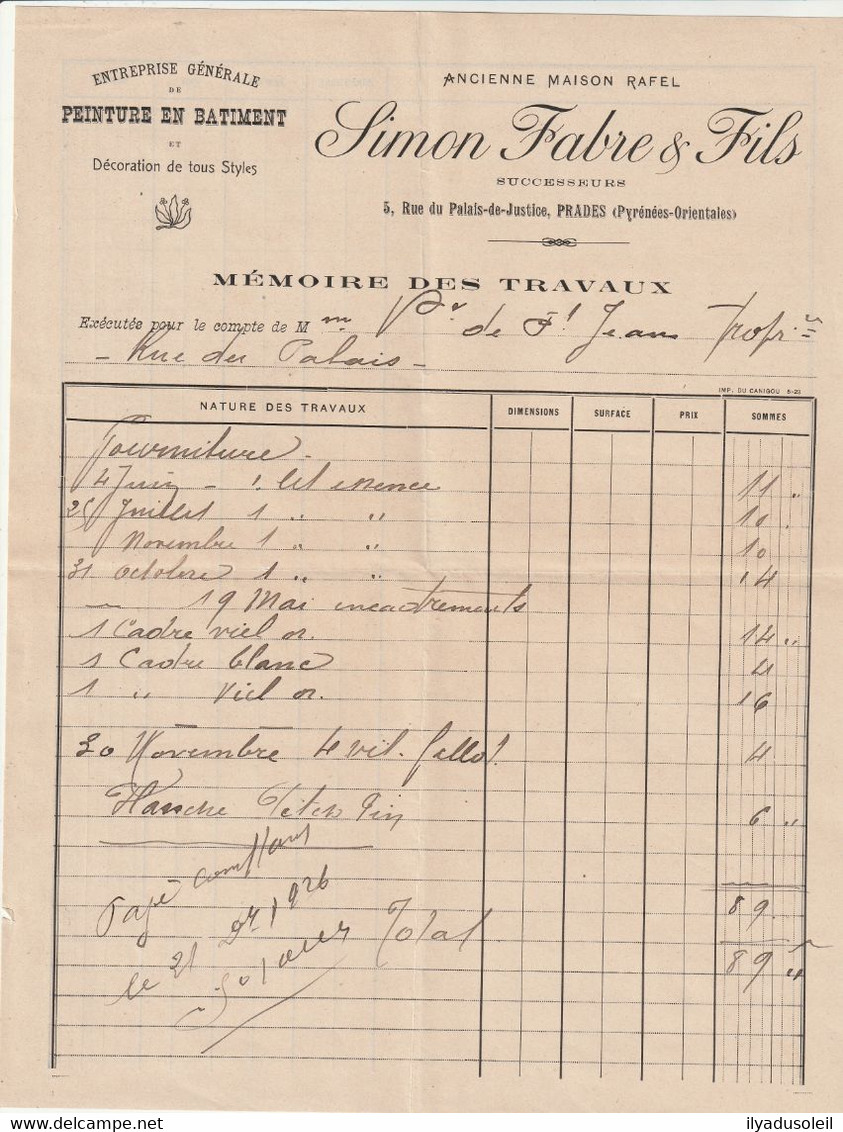 ENTREPRISE GÉNÉRALE
DE
PEINTURE EN BATIMENT
ET
Décoration de tous Styles
ANCIENNE MAISON RAFEL
Simon Fabre & Fils
SUCCESSEURS
5, Rue du Palais-de-Justice, PRADES (Pyrénées-Orientales)
MÉMOIRE DES TRAVAUX
Exécutés pour le compte de Mme Vve de St Jean
- Rue du Palais -
IMP. DU CANIGOU 5-23
NATURE DES TRAVAUX DIMENSIONS SURFACE PRIX SOMMES
Fourniture -
4 Juin - 1 lit essence 11 "
25 Juillet 1 " " 10 "
Novembre 1 " " 10
31 Octobre 1 " " 14
19 Mai encadrements
1 Cadre viel or. 14 "
1 Cadre blanc 4
1 " viel or. 16
30 Novembre 4 vit. 4
Planche Pitch Pin 6 "
89
Payé comptant
le 21 1926
Total 89 "
ilyadusoleil